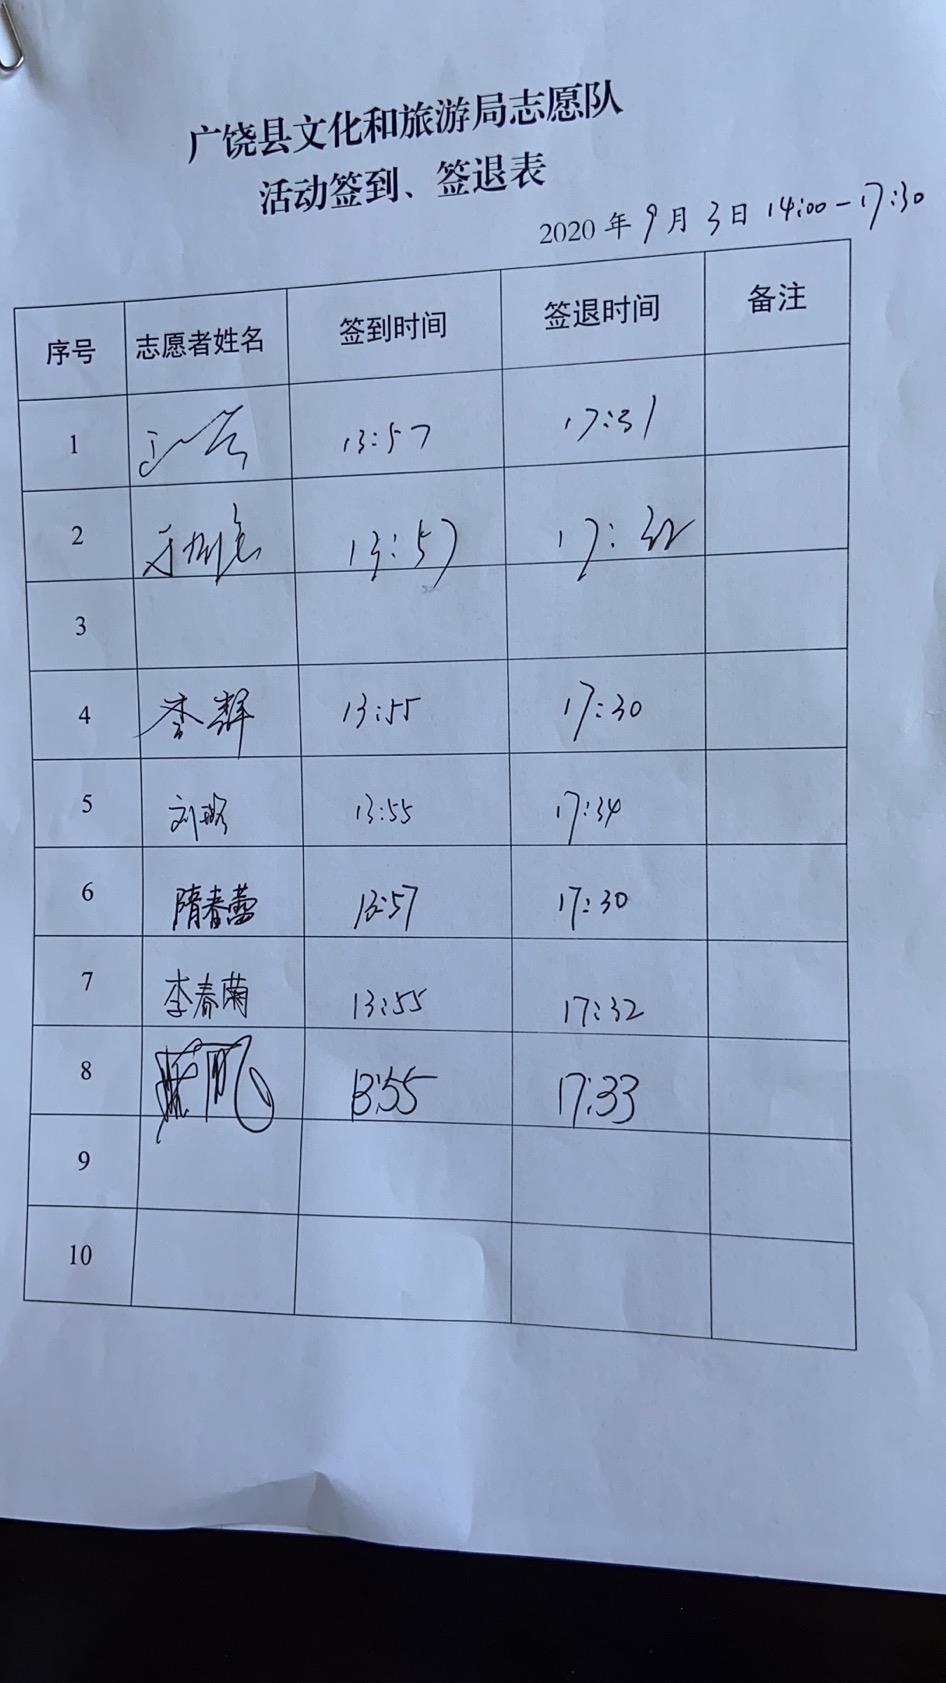 广饶县文化和旅游局志愿队
活动签到、签退表
2020 年 9 月 3 日 14:00-17:30
序号 志愿者姓名 签到时间 签退时间 备注
1 13:57 17:31
2 13:57 17:32
3
4 李辉 13:55 17:30
5 刘 13:55 17:34
6 隋春蕾 13:57 17:30
7 李春菊 13:55 17:32
8 13:55 17:33
9
10